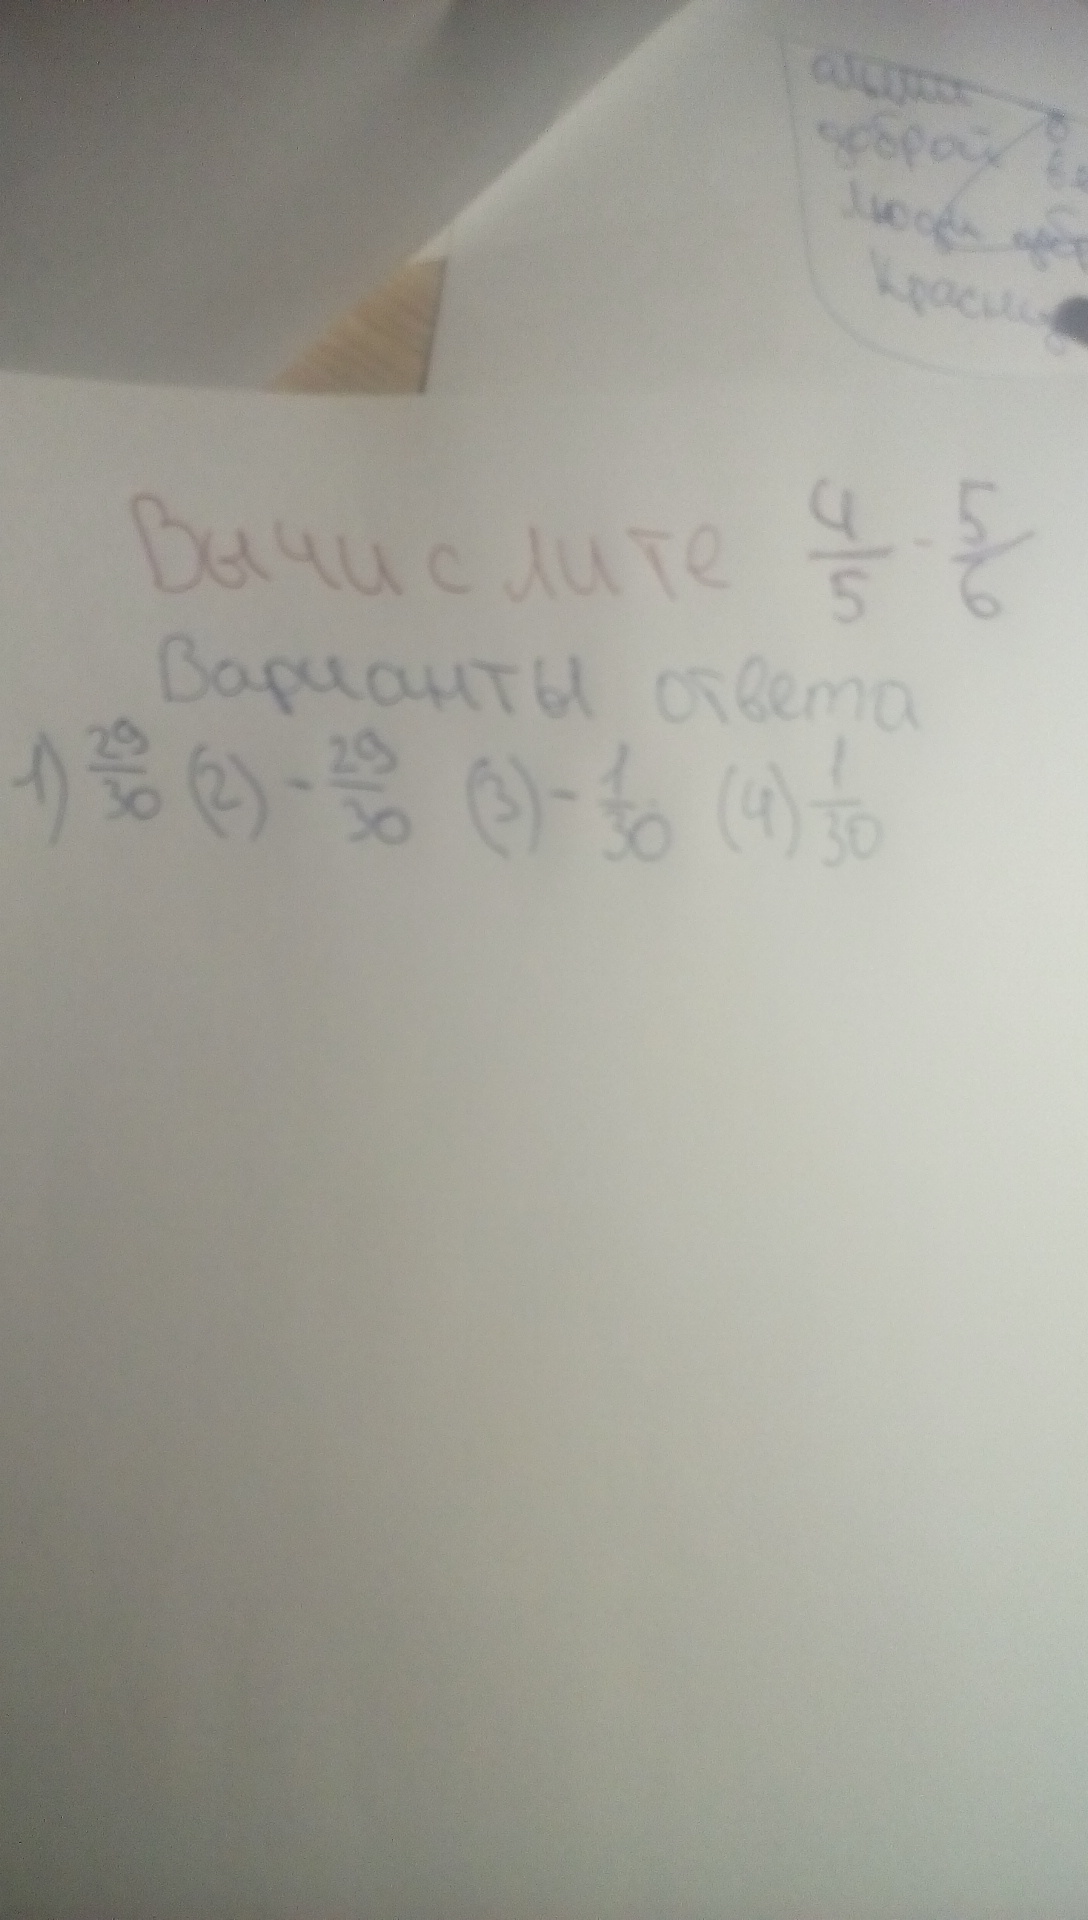 доброй
люди
Вычислите 4/5 - 5/6
Варианты ответа
1) 29/30 (2) - 29/30 (3) - 1/30 (4) 1/30